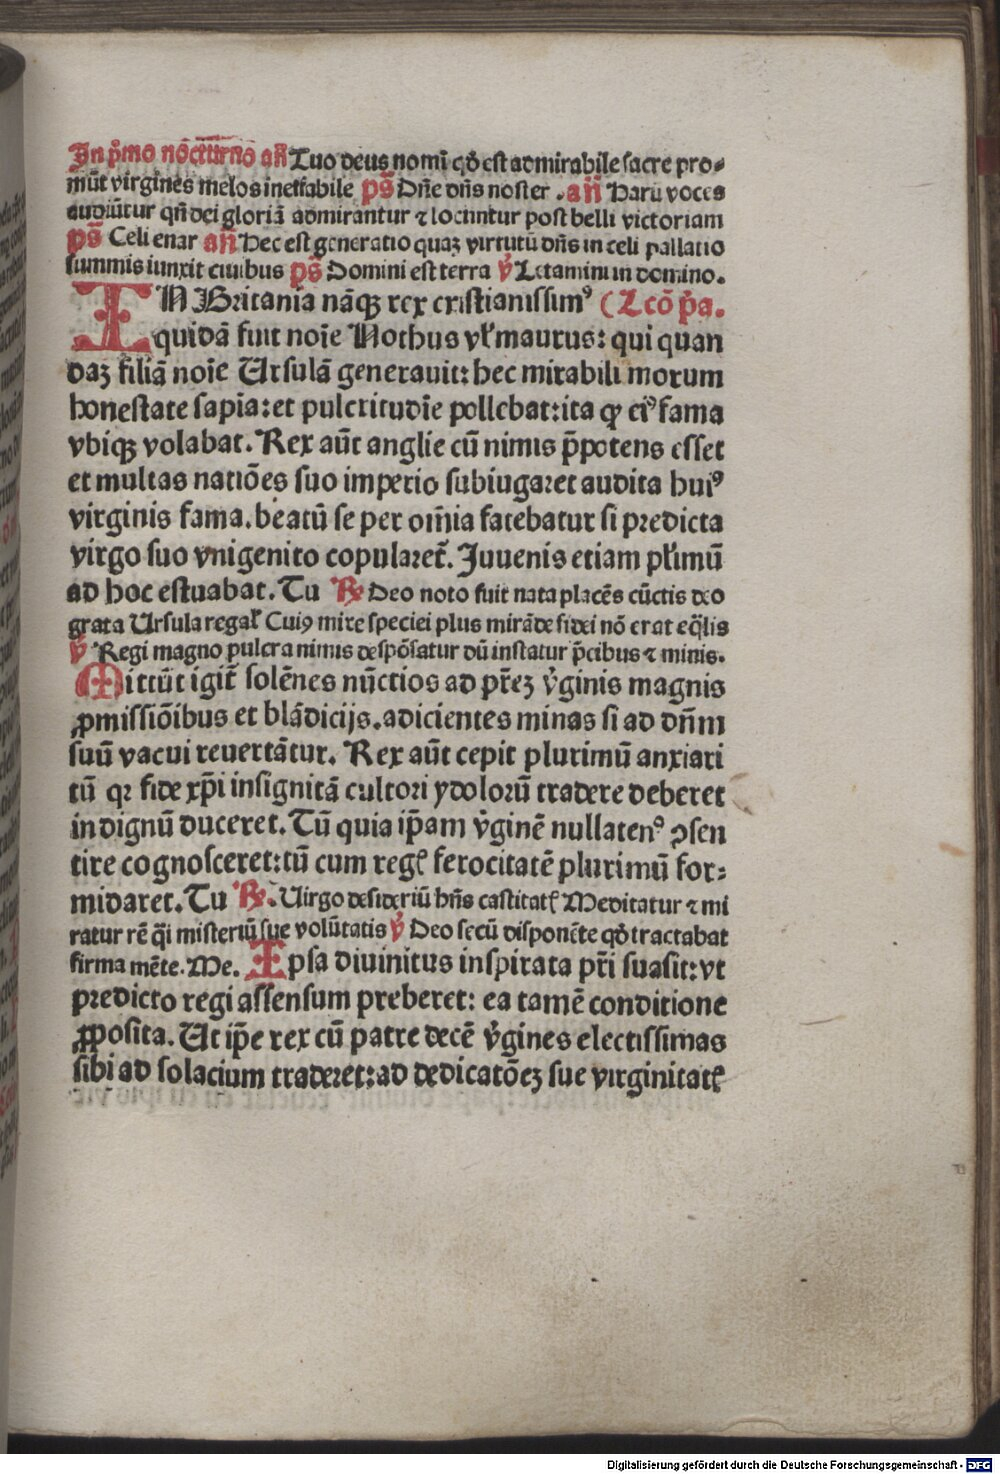 In pͥmo noctᷣurno an̄ Tuo deus nomĩ qd̛ est admirabile sacre pro-
mũt virgines melos ineffabile ps̄ Dñe dñs noster . an̄ Harũ voces
audiũtur qñ dei gloriã admirantur ⁊ locuntur post belli victoriam
ps̄ Celi enar an̄ Hec est generatio quaꝫ virtutũ dñs in celi pallatio
summis iunxit ciuibus ps̄ Domini est terra v̛ Letamini in domino.
IN Britania nãqꝫ rex cristianissimꝰ (Lcõ pͥa.
quidã fuit noĩe Nothus vl̛ maurus: qui quan
daꝫ filiã noĩe Ursulã generauit: hec mirabili morum
honestate sapia: et pulcritudĩe pollebat: ita ꝙ eiꝰ fama
vbiqꝫ volabat. Rex aũt anglie cũ nimis p̄potens esset
et multas natiões suo imperio subiugaret audita huiꝰ
virginis fama. beatũ se per om̃ia fatebatur si predicta
virgo suo vnigenito copularet᷑. Juuenis etiam pl̛imũ
ad hoc estuabat. Tu ℟ Deo noto fuit nata placẽs cũctis deo
grata Ursula regal̛ Cuiꝰ mire speciei plus mirãde fidei nõ erat eq̃lis
v̛ Regi magno pulcra nimis despõsatur dũ instatur p̄cibus ⁊ minis.
Mittũt igit᷑ solẽnes nũctios ad pr̃eꝫ v̛ginis magnis
ꝓmissiõibus et blãdicijs. adicientes minas si ad dñm
suũ vacui reuertãtur. Rex aũt cepit plurimũ anxiari
tũ qꝛ fide xp̃i insignitã cultori ydolorũ tradere deberet
indignũ duceret. Tũ quia ip̃am v̛ginẽ nullatenꝰ ꝯsen
tire cognosceret: tũ cum regꝭ ferocitatẽ plurimũ for-
midaret. Tu ℟. Uirgo desideriũ hñs castitatꝭ Meditatur ⁊ mi
ratur rẽ q̃i misteriũ sue volũtatis v̛ Deo secũ disponẽte qd̛ tractabat
firma mẽte. Me. Ipsa diuinitus inspirata pr̃i suasit: vt
predicto regi assensum preberet: ea tamẽ conditione
ꝓposita. Ut ip̃e rex cũ patre decẽ v̛gines electissimas
sibi ad solacium traderet: ad dedicatõeꝫ sue virginitatꝭ
Digitalisierung gefördert durch die Deutsche Forschungsgemeinschaft - DFG